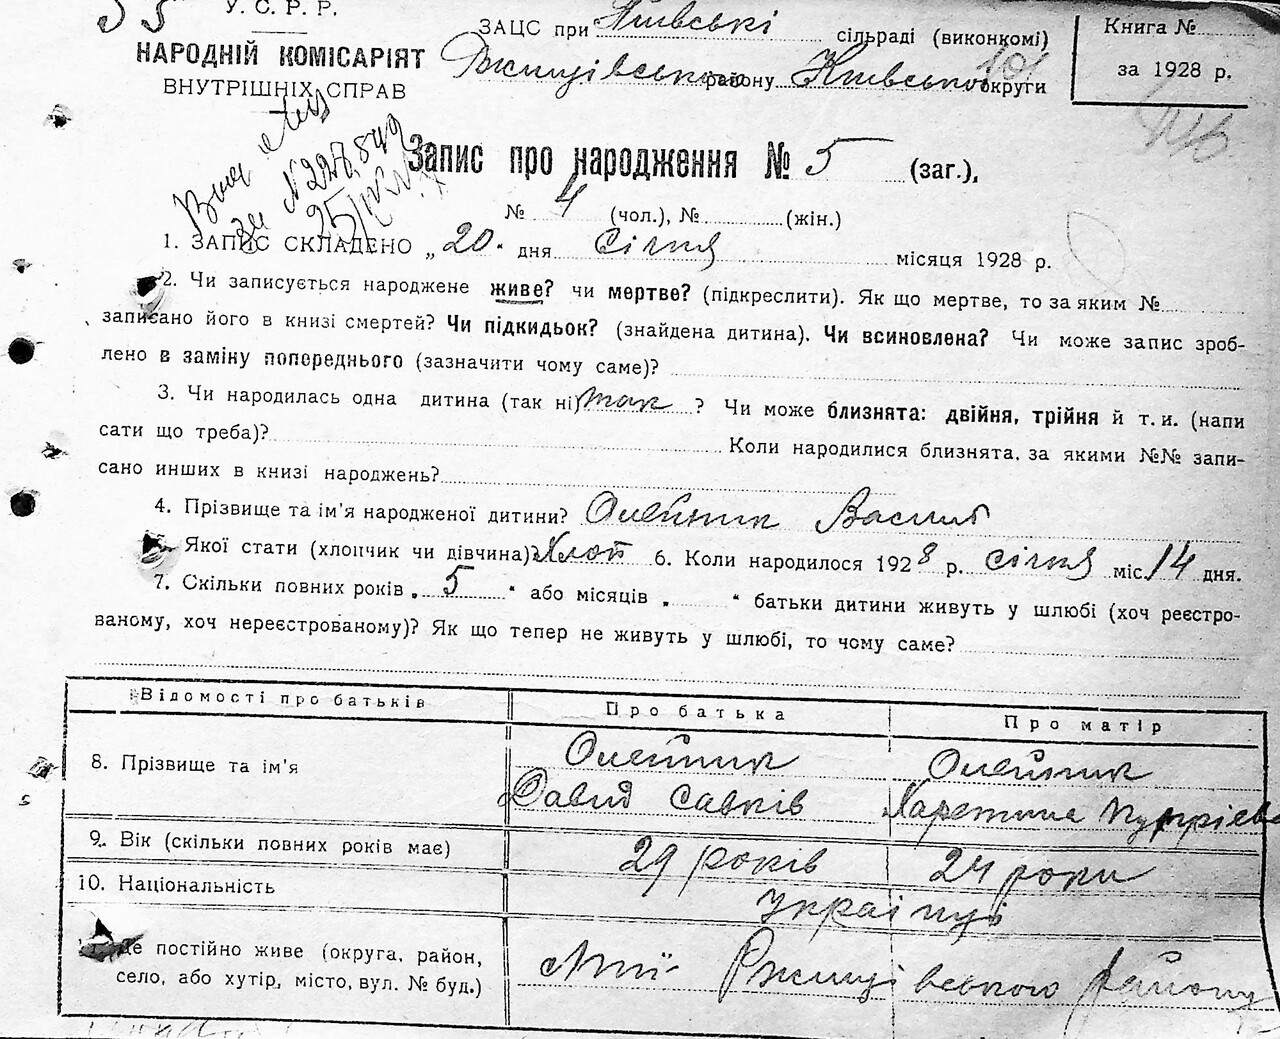 У. С. Р. Р.
НАРОДНІЙ КОМІСАРІЯТ
ВНУТРІШНІХ СПРАВ
ЗАЦС при сільраді (виконкомі)
Ржищівського району Київської округи
Книга №
за 1928 р.
Запис про народження № 5 (заг.),
№ 4 (чол.), № (жін.)
1. ЗАПИС СКЛАДЕНО „20" дня Січня місяця 1928 р.
2. Чи записується народжене живе? чи мертве? (підкреслити). Як що мертве, то за яким №
записано його в книзі смертей? Чи підкидьок? (знайдена дитина). Чи всиновлена? Чи може запис зроб-
лено в заміну попереднього (зазначити чому саме)?
3. Чи народилась одна дитина (так ні) так ? Чи може близнята: двійня, трійня й т. и. (напи
сати що треба)? Коли народилися близнята, за якими №№ запи-
сано инших в книзі народжень?
4. Прізвище та ім'я народженої дитини? Олейник Василь
Якої стати (хлопчик чи дівчина)? Хлоп 6. Коли народилось 1928 р. січня міс. 14 дня.
7. Скільки повних років „ 5 " або місяців „ " батьки дитини живуть у шлюбі (хоч реєстро-
ваному, хоч нереєстрованому)? Як що тепер не живуть у шлюбі, то чому саме?
Відомості про батьків Про батька Про матір
8. Прізвище та ім'я Олейник Давид Савків Олейник
9. Вік (скільки повних років має) 29 років 24 роки
10. Національність Українці
де постійно живе (округа, район,
село, або хутір, місто, вул. № буд.) Ржищівського району